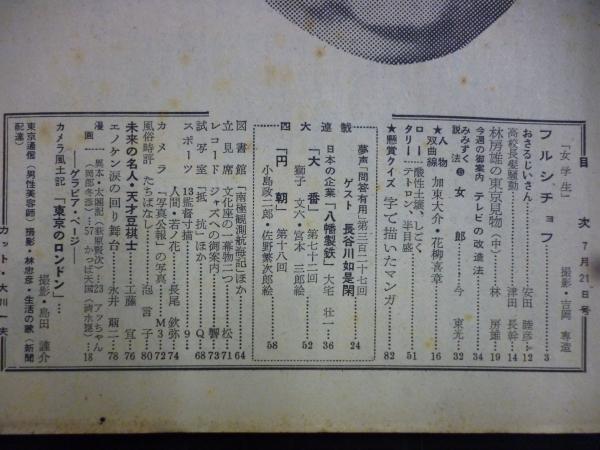 目 次 7月21日号
「女学生」 撮影・吉岡 専造
フルシチョフ 3
おさるじいさん 安田 睦彦 12
高校長髪騒動 津田 長幹 14
林房雄の東京見物(中) 林 房雄 19
今週の御案内 テレビの改造法 34
みみずく説法⑧ 女郎 今 東光 32
★人物双曲線 加東大介・花柳喜章 16
ロータリー 酸性土壌、しごく
テトロン 半目盛 51
★懸賞クイズ 字で描いたマンガ 82
連載
夢声・問答有用(第三百二十七回)
ゲスト 長谷川如是閑 24
日本の企業「八幡製鉄」 大宅 壮一 36
「大番」 第七十二回
獅子 文六・宮本 三郎絵 52
四 「円朝」 第十八回
小島政二郎・佐野繁次郎絵 58
図書館 「南極観測航海記」ほか 64
立見席 文化座の一幕物二つ 松 71
レコード ジャズへの御案内 響 73
試写室 「抵抗」ほか Q 68
スポーツ 13監督寸描 9
人間・若ノ花 長尾 欽弥 74
カメラ 「写真公報」の写真 M 3 72
風俗時評 たちばなし 泡言子 80
未来の名人・天才豆棋士 工藤 宜 76
エノケン涙の回り舞台 永井 瓢二 78
漫画 異本・太閤記(萩原賢次) 23 アッちゃん
(岡部冬彦) 57 かっぱ天国(清水崑) 18
――グラビア・ページ――
カメラ風土記 「東京のロンドン」… 撮影・島田 謹介
東京通信(男性美容師) 撮影・林忠彦・生活の歌(新聞
配達)
カット・大川一夫